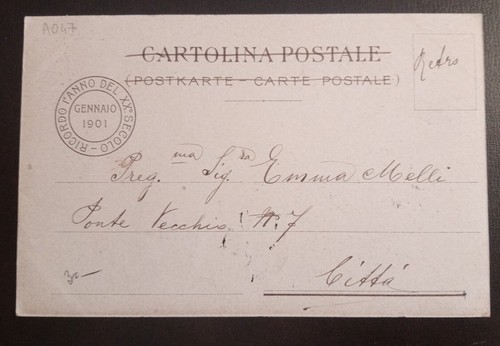 A047
CARTOLINA POSTALE
(POSTKARTE - CARTE POSTALE)
Retro
RICORDO I°ANNO DEL XX° SECOLO -
GENNAIO
1901
Preg.ma Sig.ra Emma Melli
Ponte Vecchio N. 7
Città
30-